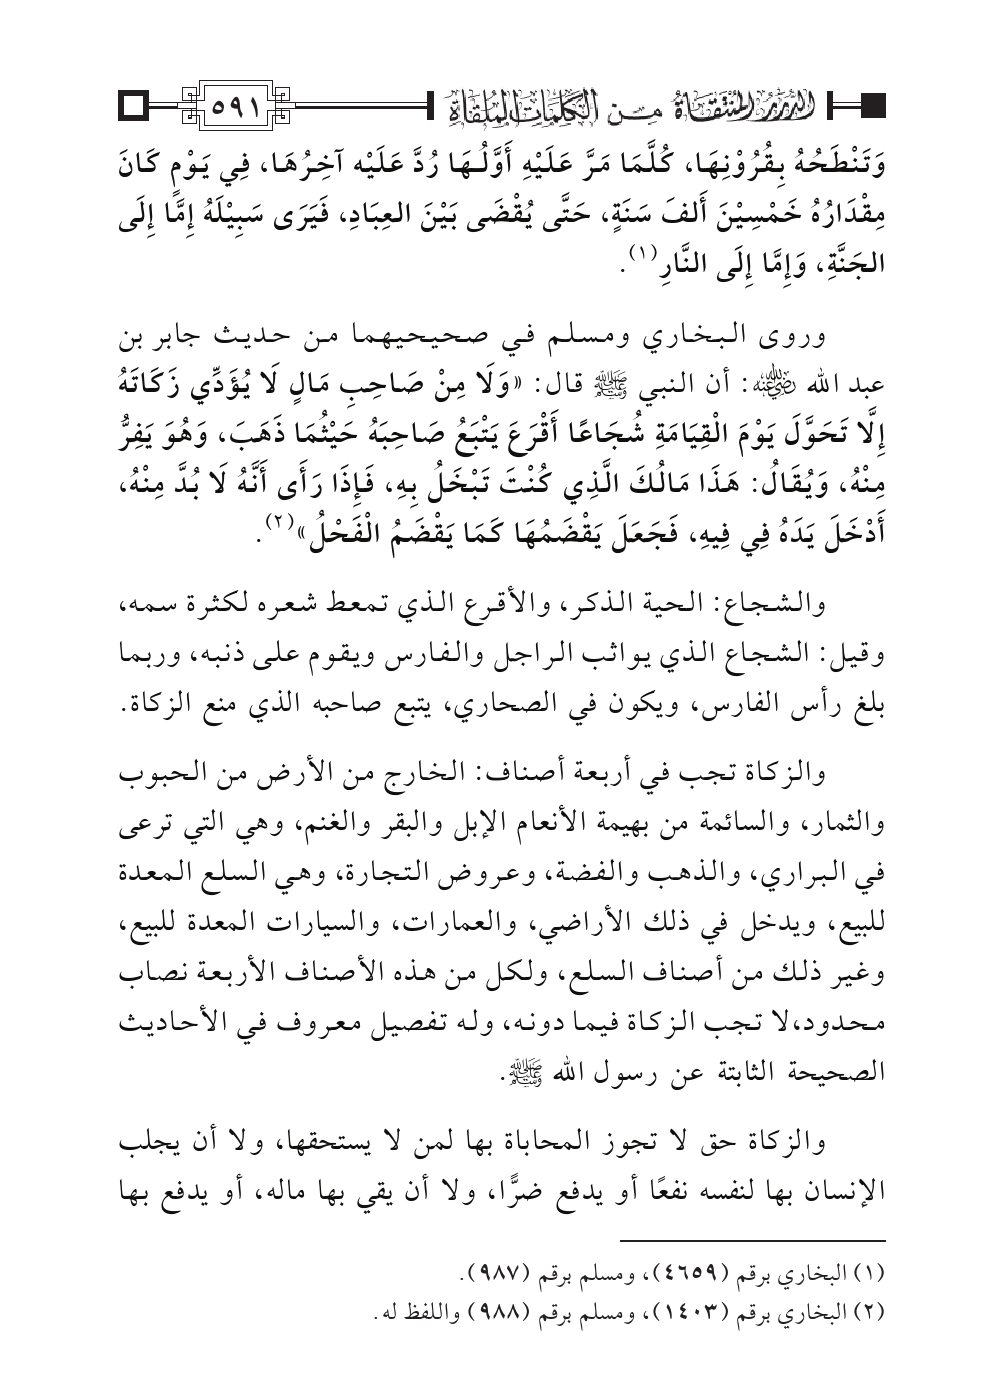 الدرر المنتقاة من الكلمات الملقاة
٥٩١
وَتَنْطَحُهُ بِقُرُوْنِهَا، كُلَّمَا مَرَّ عَلَيْهِ أَوَّلُهَا رُدَّ عَلَيْه آخِرُهَا، فِي يَوْمٍ كَانَ
مِقْدَارُهُ خَمْسِيْنَ أَلفَ سَنَةٍ، حَتَّى يُقْضَى بَيْنَ العِبَادِ، فَيَرَى سَبِيْلَهُ إِمَّا إِلَى
الجَنَّةِ، وَإِمَّا إِلَى النَّارِ(١).
وروى البخاري ومسلم في صحيحيهما من حديث جابر بن
عبد الله رضي الله عنه: أن النبي ﷺ قال: «وَلَا مِنْ صَاحِبِ مَالٍ لَا يُؤَدِّي زَكَاتَهُ
إِلَّا تَحَوَّلَ يَوْمَ الْقِيَامَةِ شُجَاعًا أَقْرَعَ يَتْبَعُ صَاحِبَهُ حَيْثُمَا ذَهَبَ، وَهُوَ يَفِرُّ
مِنْهُ، وَيُقَالُ: هَذَا مَالُكَ الَّذِي كُنْتَ تَبْخَلُ بِهِ، فَإِذَا رَأَى أَنَّهُ لَا بُدَّ مِنْهُ،
أَدْخَلَ يَدَهُ فِي فِيهِ، فَجَعَلَ يَقْضَمُهَا كَمَا يَقْضَمُ الْفَحْلُ»(٢).
والشجاع: الحية الذكر، والأقرع الذي تمعط شعره لكثرة سمه،
وقيل: الشجاع الذي يواثب الراجل والفارس ويقوم على ذنبه، وربما
بلغ رأس الفارس، ويكون في الصحاري، يتبع صاحبه الذي منع الزكاة.
والزكاة تجب في أربعة أصناف: الخارج من الأرض من الحبوب
والثمار، والسائمة من بهيمة الأنعام الإبل والبقر والغنم، وهي التي ترعى
في البراري، والذهب والفضة، وعروض التجارة، وهي السلع المعدة
للبيع، ويدخل في ذلك الأراضي، والعمارات، والسيارات المعدة للبيع،
وغير ذلك من أصناف السلع، ولكل من هذه الأصناف الأربعة نصاب
محدود،لا تجب الزكاة فيما دونه، وله تفصيل معروف في الأحاديث
الصحيحة الثابتة عن رسول الله ﷺ.
والزكاة حق لا تجوز المحاباة بها لمن لا يستحقها، ولا أن يجلب
الإنسان بها لنفسه نفعًا أو يدفع ضرًّا، ولا أن يقي بها ماله، أو يدفع بها
(١) البخاري برقم (٤٦٥٩)، ومسلم برقم (٩٨٧).
(٢) البخاري برقم (١٤٠٣)، ومسلم برقم (٩٨٨) واللفظ له.